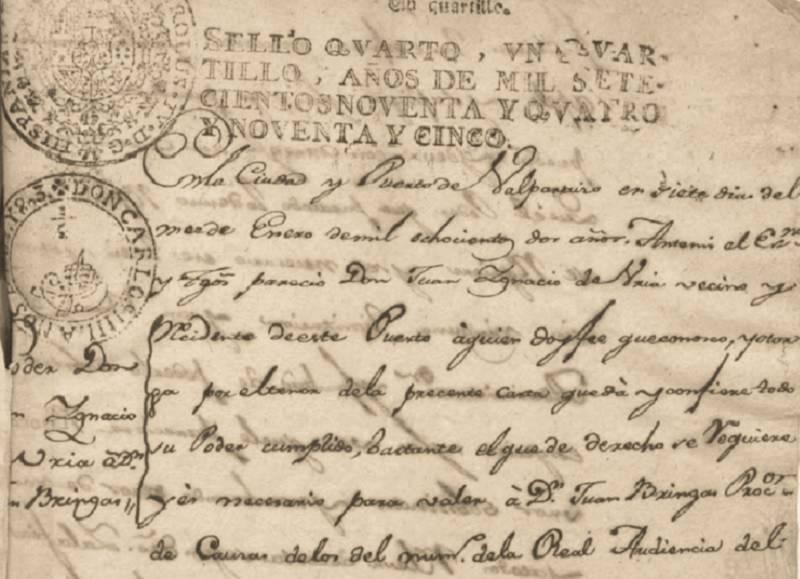 Un quartillo.
SELLO QVARTO, VN QVAR-
TILLO, AÑOS DE MIL SETE-
CIENTOS NOVENTA Y QVATRO
Y NOVENTA Y CINCO.
HISPANIAR
DON CARLOS IIII
En la Ciudad y Puerto de Valparaiso en siete dia del
mes de Enero de mil ochocientos dos años. Antemi el Ess.no
y tgos parecio Don Juan Ygnacio de Vria vecino y
Recidente de este Puerto àquien doy fee que conosco, y otor
ga por el tenor dela precente carta que dà y confiere todo
su Poder cumplido, bastante el que de derecho se Requiere
y es necesario para valer à D.n Juan Bringas Proc.or
de Causas delos del num.o dela Real Audiencia del
oder Don
n Ygnacio
Vria à D.n
n Bringas